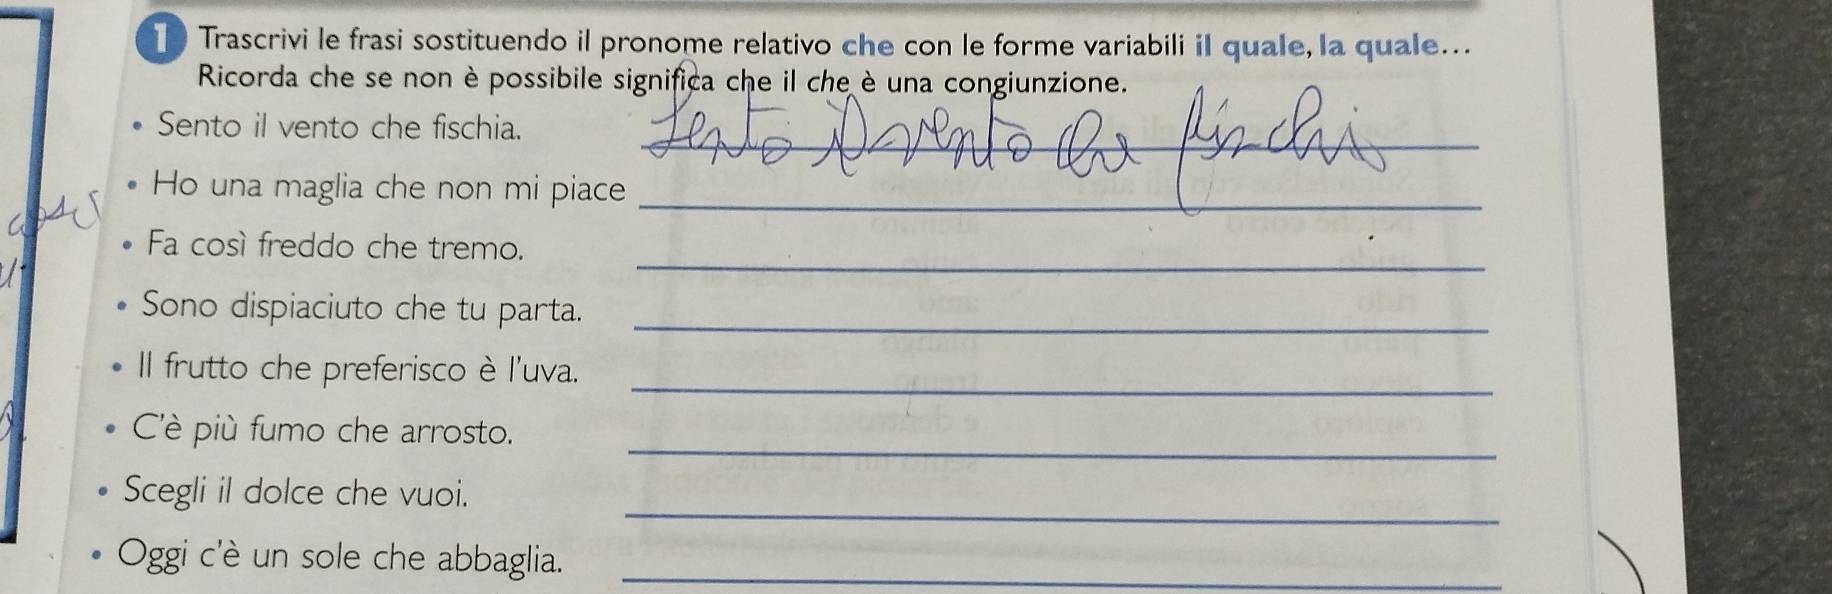 1 Trascrivi le frasi sostituendo il pronome relativo che con le forme variabili il quale, la quale...
Ricorda che se non è possibile significa che il che è una congiunzione.
• Sento il vento che fischia. Sento il vento che
• Ho una maglia che non mi piace
• Fa così freddo che tremo.
• Sono dispiaciuto che tu parta.
• Il frutto che preferisco è l'uva.
• C'è più fumo che arrosto.
• Scegli il dolce che vuoi.
• Oggi c'è un sole che abbaglia.